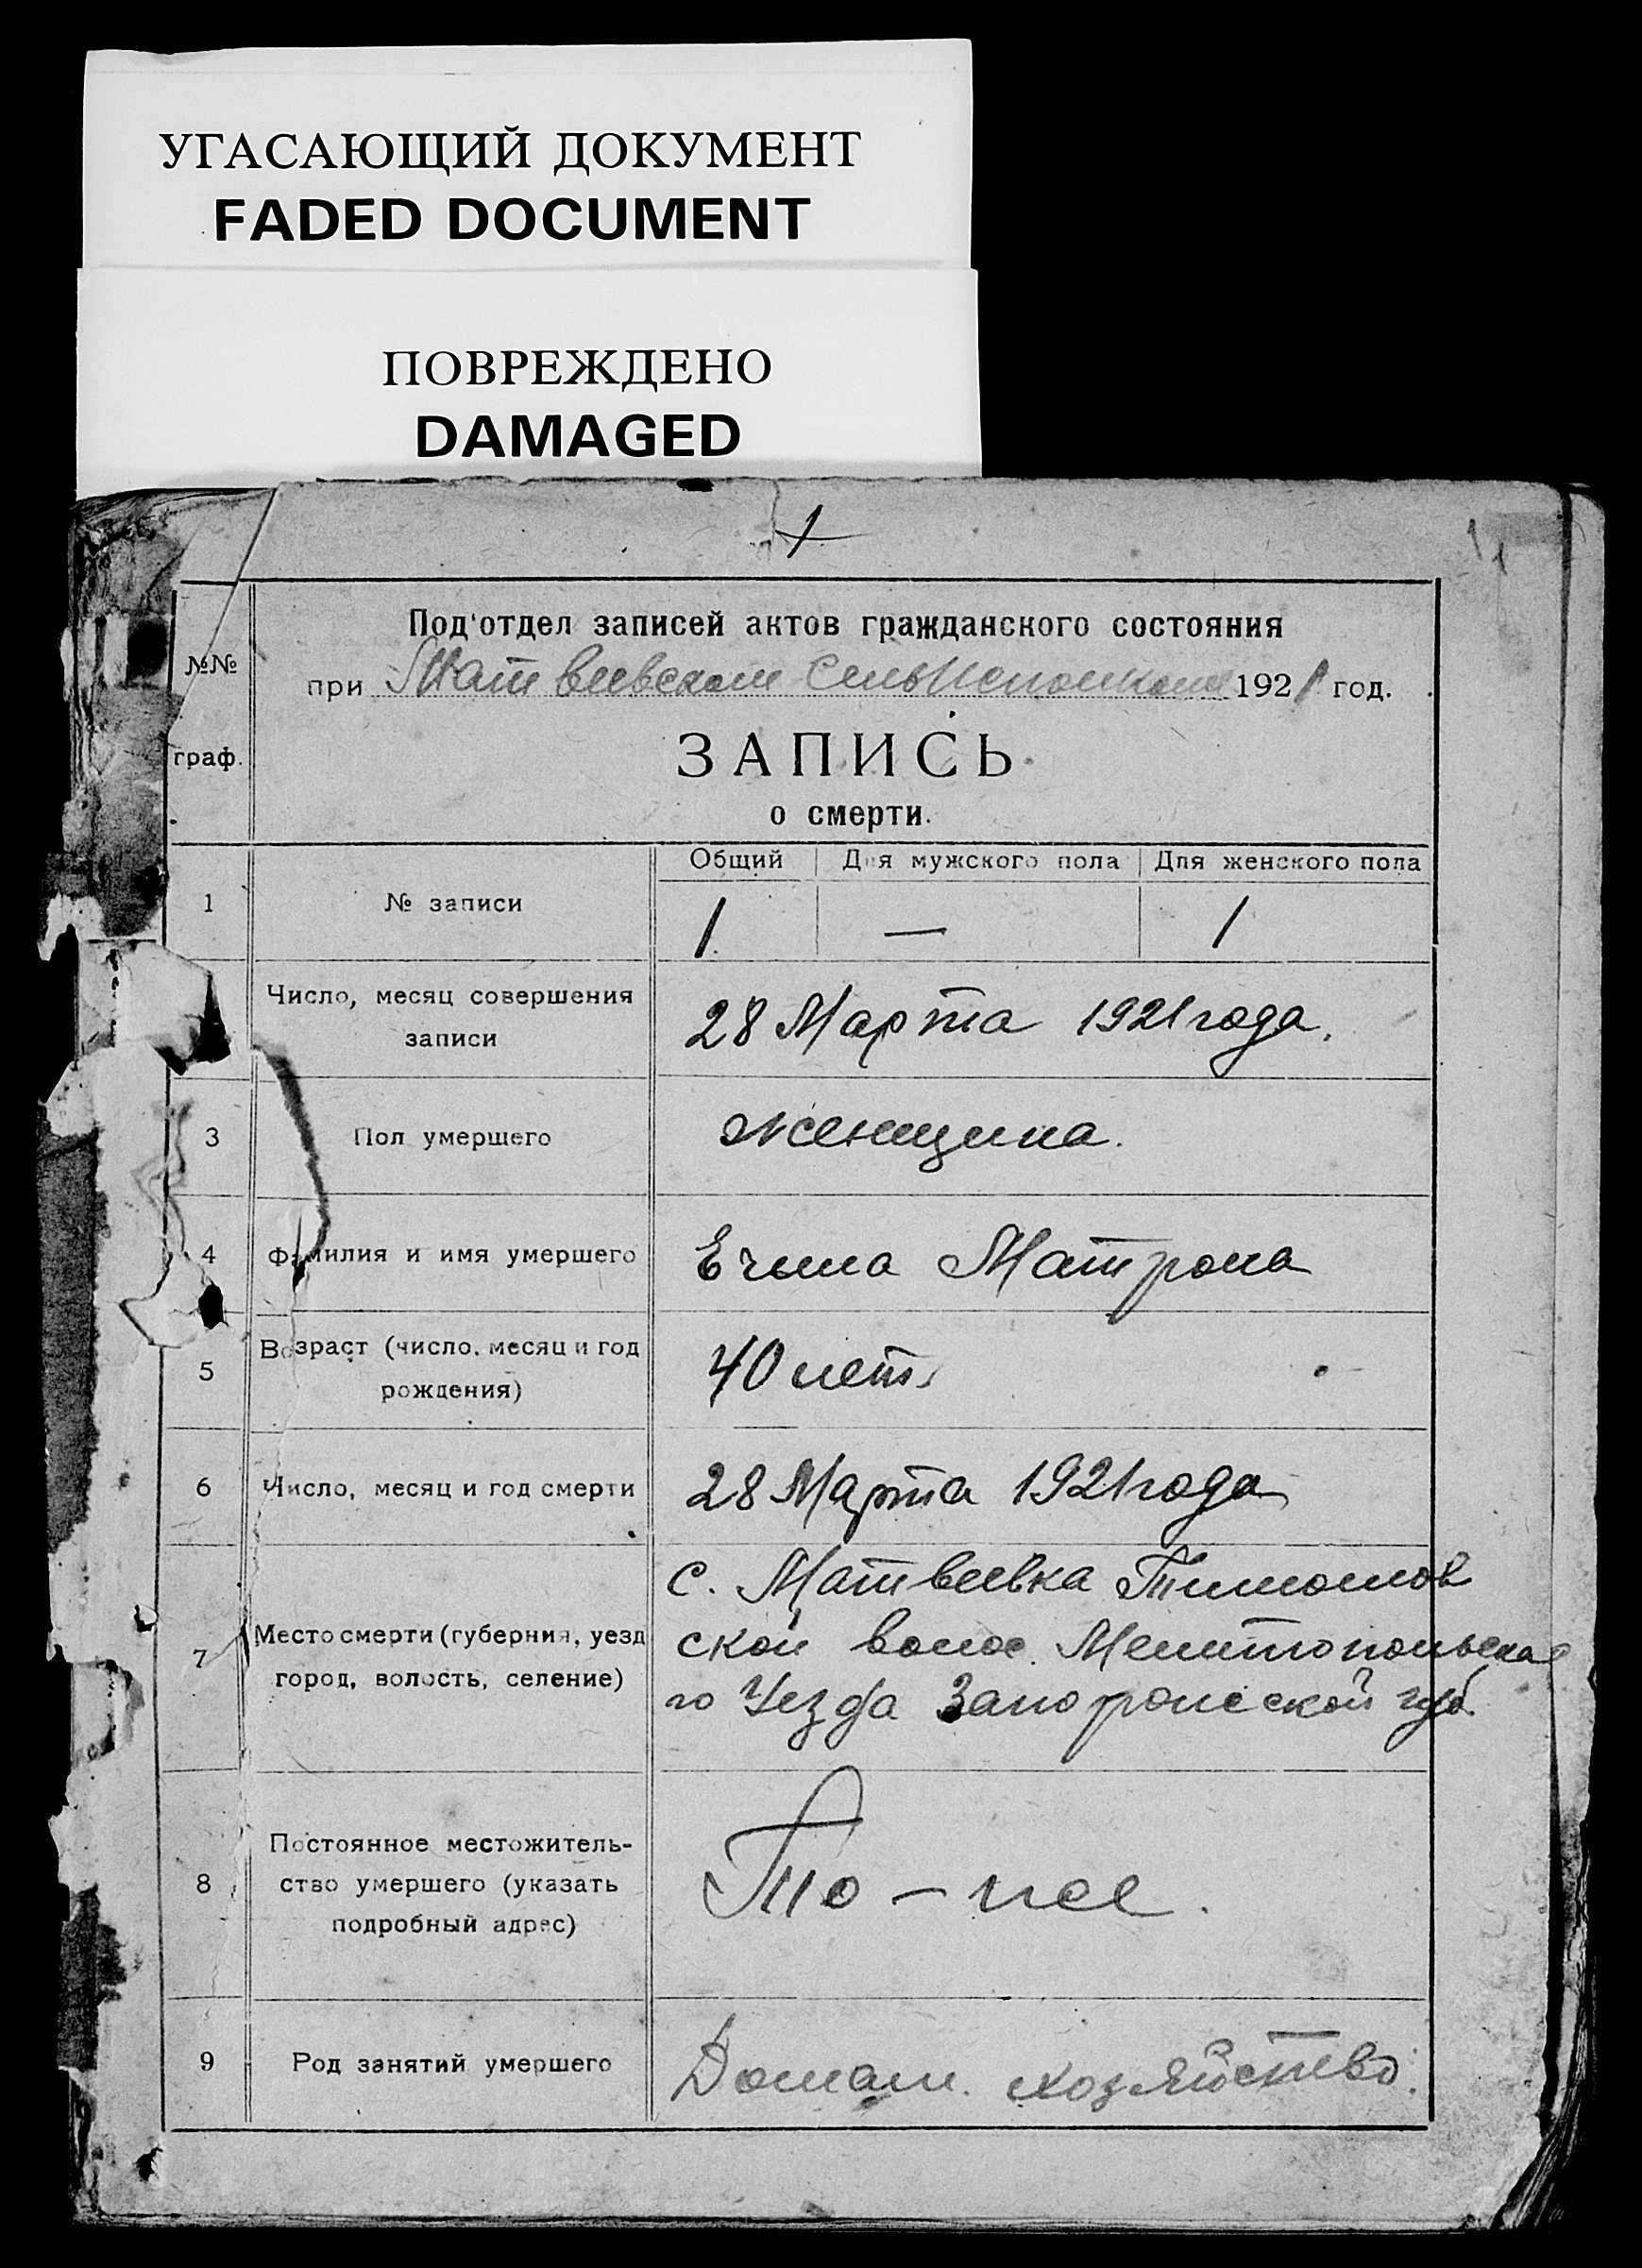 УГАСАЮЩИЙ ДОКУМЕНТ
FADED DOCUMENT
ПОВРЕЖДЕНО
DAMAGED
1
№№ граф.
Под‘отдел записей актов гражданского состояния
при Матвеевском Сельисполкоме 1921 год.
ЗАПИСЬ
о смерти.
Общий Для мужского пола Для женского пола
1 № записи 1 — 1
Число, месяц совершения
записи
28 Марта 1921 года.
3 Пол умершего женщина.
4 Фамилия и имя умершего Матрона
5 Возраст (число, месяц и год
рождения)
40 лет
6 Число, месяц и год смерти 28 Марта 1921 года
7 Место смерти (губерния, уезд
город, волость, селение)
с. Матвеевка
ской волос. Мелитопольска
го Уезда Запорожской губ.
8 Постоянное местожитель-
ство умершего (указать
подробный адрес)
То-же.
9 Род занятий умершего Домаш. хозяйство.